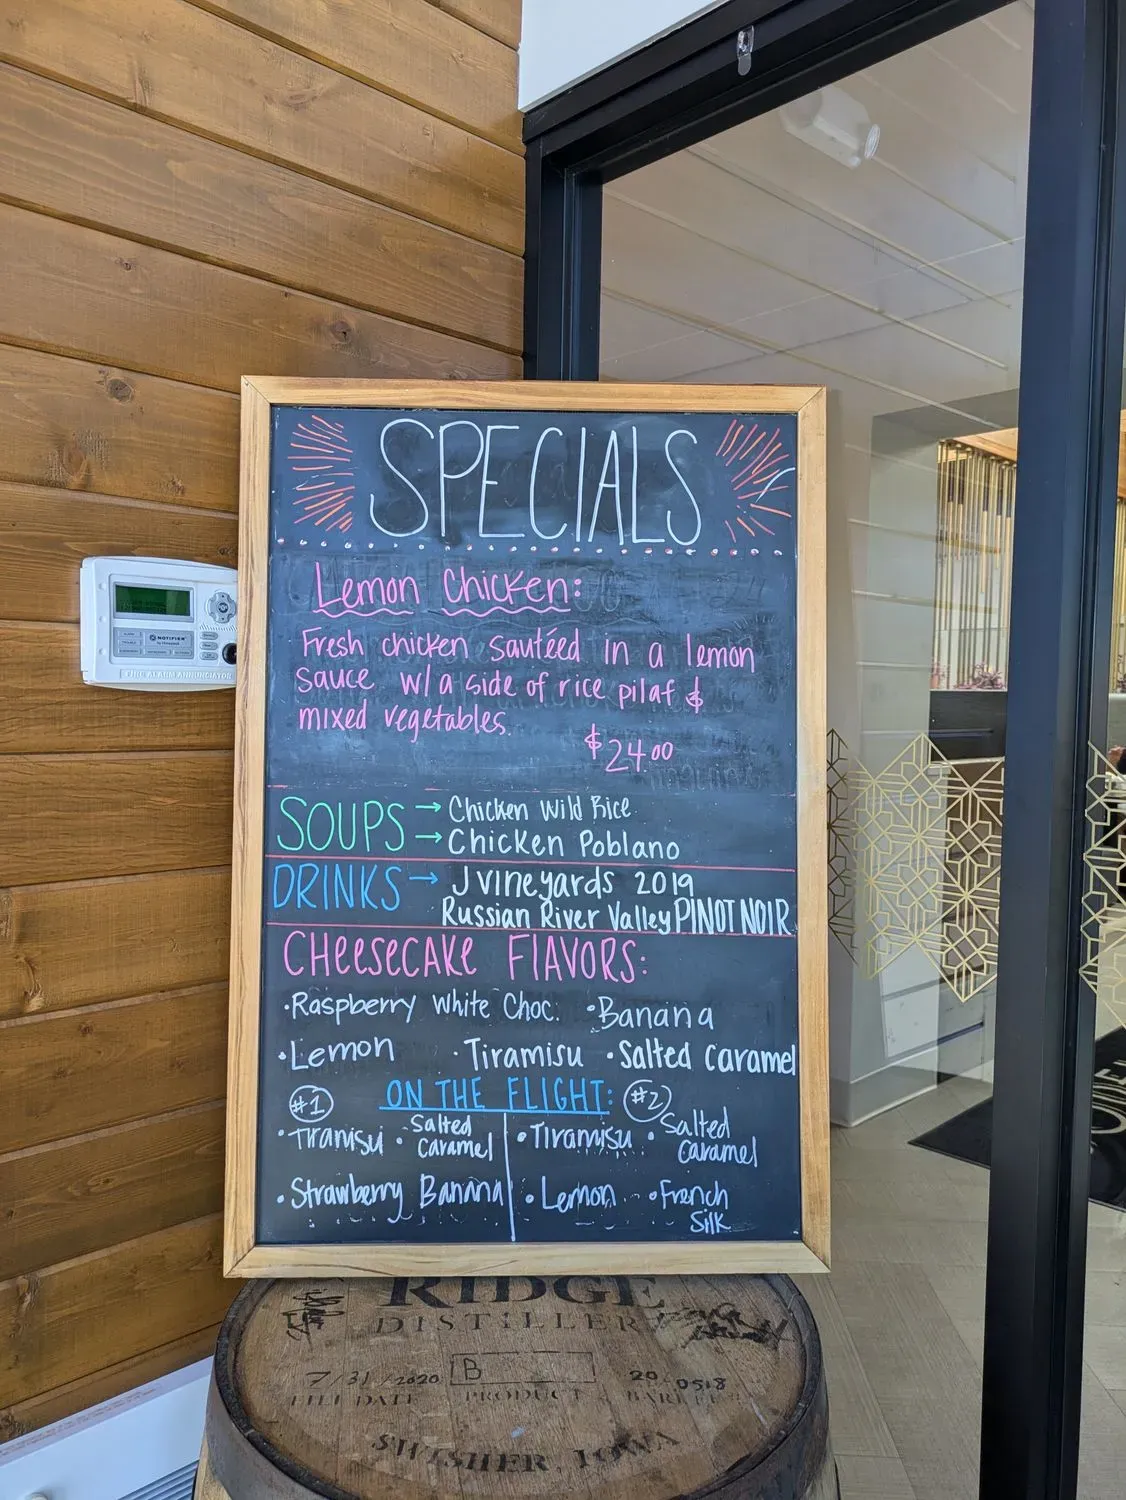 SPECIALS
Lemon Chicken:
Fresh chicken sautéed in a lemon
sauce w/ a side of rice pilaf &
mixed vegetables.
$24.00
SOUPS → Chicken Wild Rice
→ Chicken Poblano
DRINKS → J Vineyards 2019
Russian River Valley PINOT NOIR
CHEESECAKE FLAVORS:
•Raspberry White Choc. •Banana
•Lemon •Tiramisu •Salted Caramel
#1 ON THE FLIGHT: #2
•Tiramisu •Salted Caramel
•Strawberry Banana
•Tiramisu •Salted Caramel
•Lemon •French Silk
NOTIFIER
by Honeywell
FIRE ALARM ANNUNCIATOR
RIDGE
DISTILLER
7/31/2020 B 20 0518
FILL DATE PRODUCT BARREL
SWISHER, IOWA